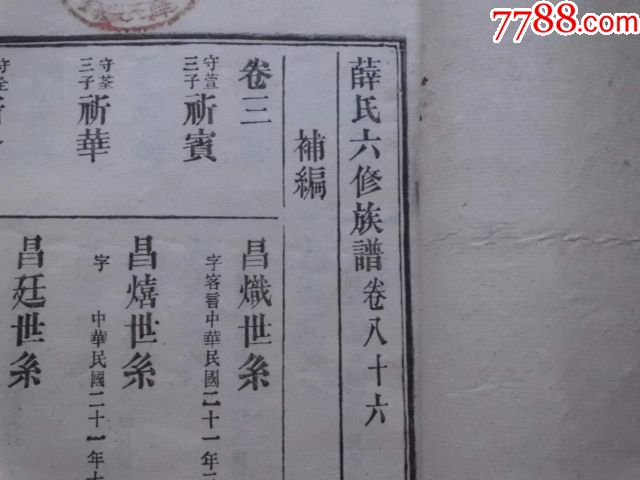 7788.com
薛氏六修族譜卷八十六
補編
卷三
守萱三子祈賓
昌熾世系
字容雲中華民國二十一年
守荃三子祈華
昌熺世系
字 中華民國二十一年
昌廷世系